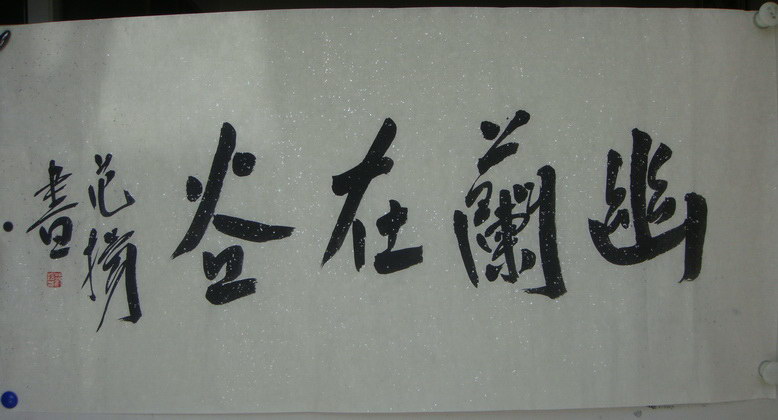 幽蘭在谷
范
書